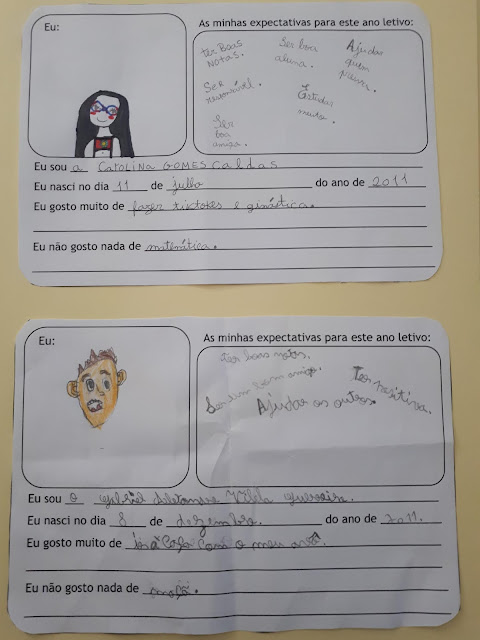 Eu:
As minhas expectativas para este ano letivo:
ter Boas Notas.
Ser boa aluna.
Ajudar quem precisa.
Ser responsável.
Estudar muito.
Ser boa amiga.
Eu sou a Carolina Gomes Caldas
Eu nasci no dia 11 de julho do ano de 2011
Eu gosto muito de fazer tictokes e ginástica.
Eu não gosto nada de matemática.
Eu:
As minhas expectativas para este ano letivo:
ter boas notas.
Ser um bom amigo.
Ter positiva.
Ajudar os outros.
Eu sou o Gabriel Vilela
Eu nasci no dia 8 de dezembro. do ano de 2011.
Eu gosto muito de com o meu avô
Eu não gosto nada de